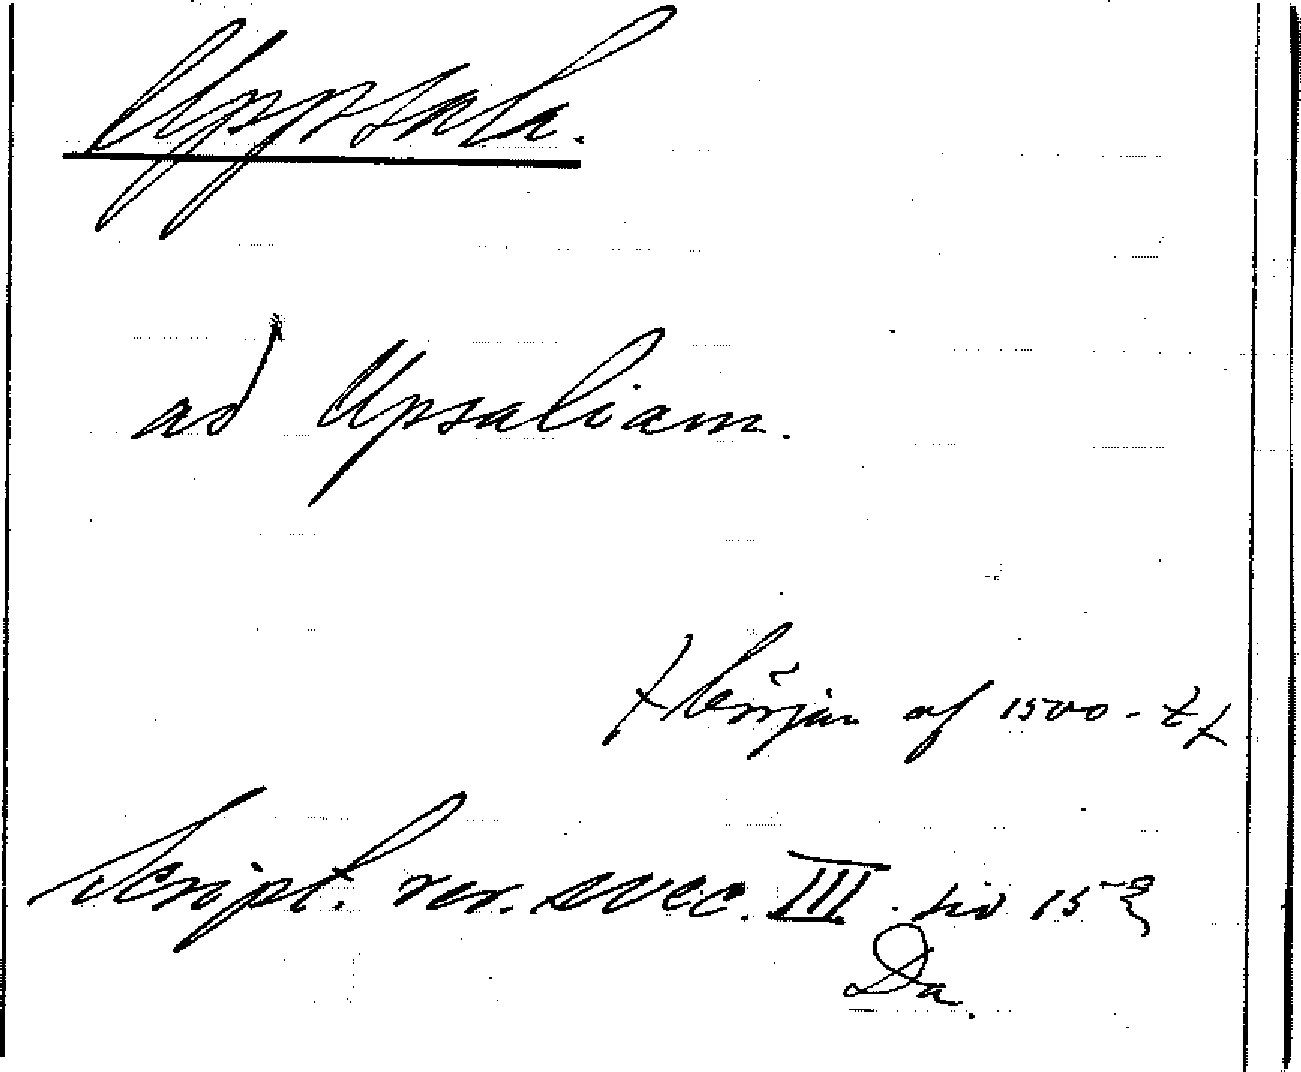 Uppsala.
ad Upsaliam.
början af 1500-t
Script. rer. svec. III. sid 15
Da.